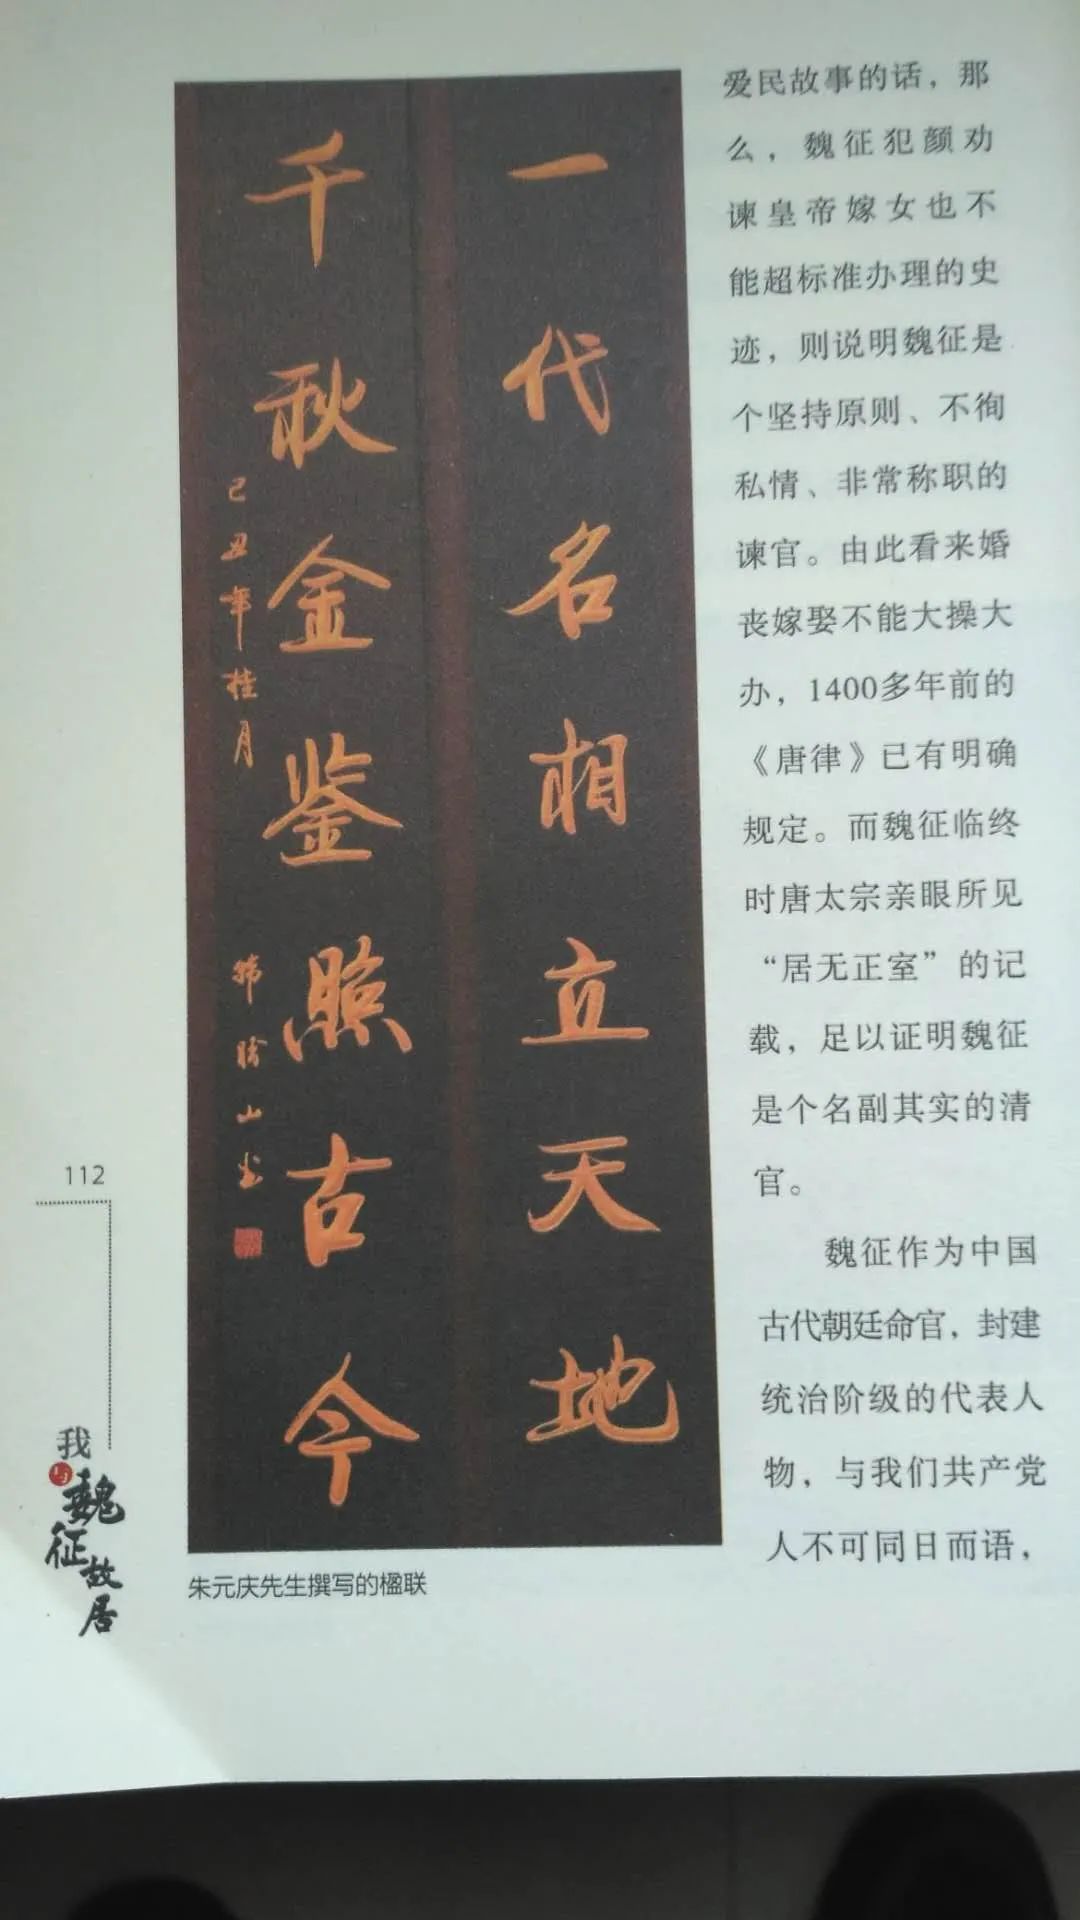 一代名相立天地
千秋金鉴照古今
己丑年桂月
韩胜山书
朱元庆先生撰写的楹联
爱民故事的话，那
么，魏征犯颜劝
谏皇帝嫁女也不
能超标准办理的史
迹，则说明魏征是
个坚持原则、不徇
私情、非常称职的
谏官。由此看来婚
丧嫁娶不能大操大
办，1400多年前的
《唐律》已有明确
规定。而魏征临终
时唐太宗亲眼所见
“居无正室”的记
载，足以证明魏征
是个名副其实的清
官。
魏征作为中国
古代朝廷命官，封建
统治阶级的代表人
物，与我们共产党
人不可同日而语，
112
我与魏征故居